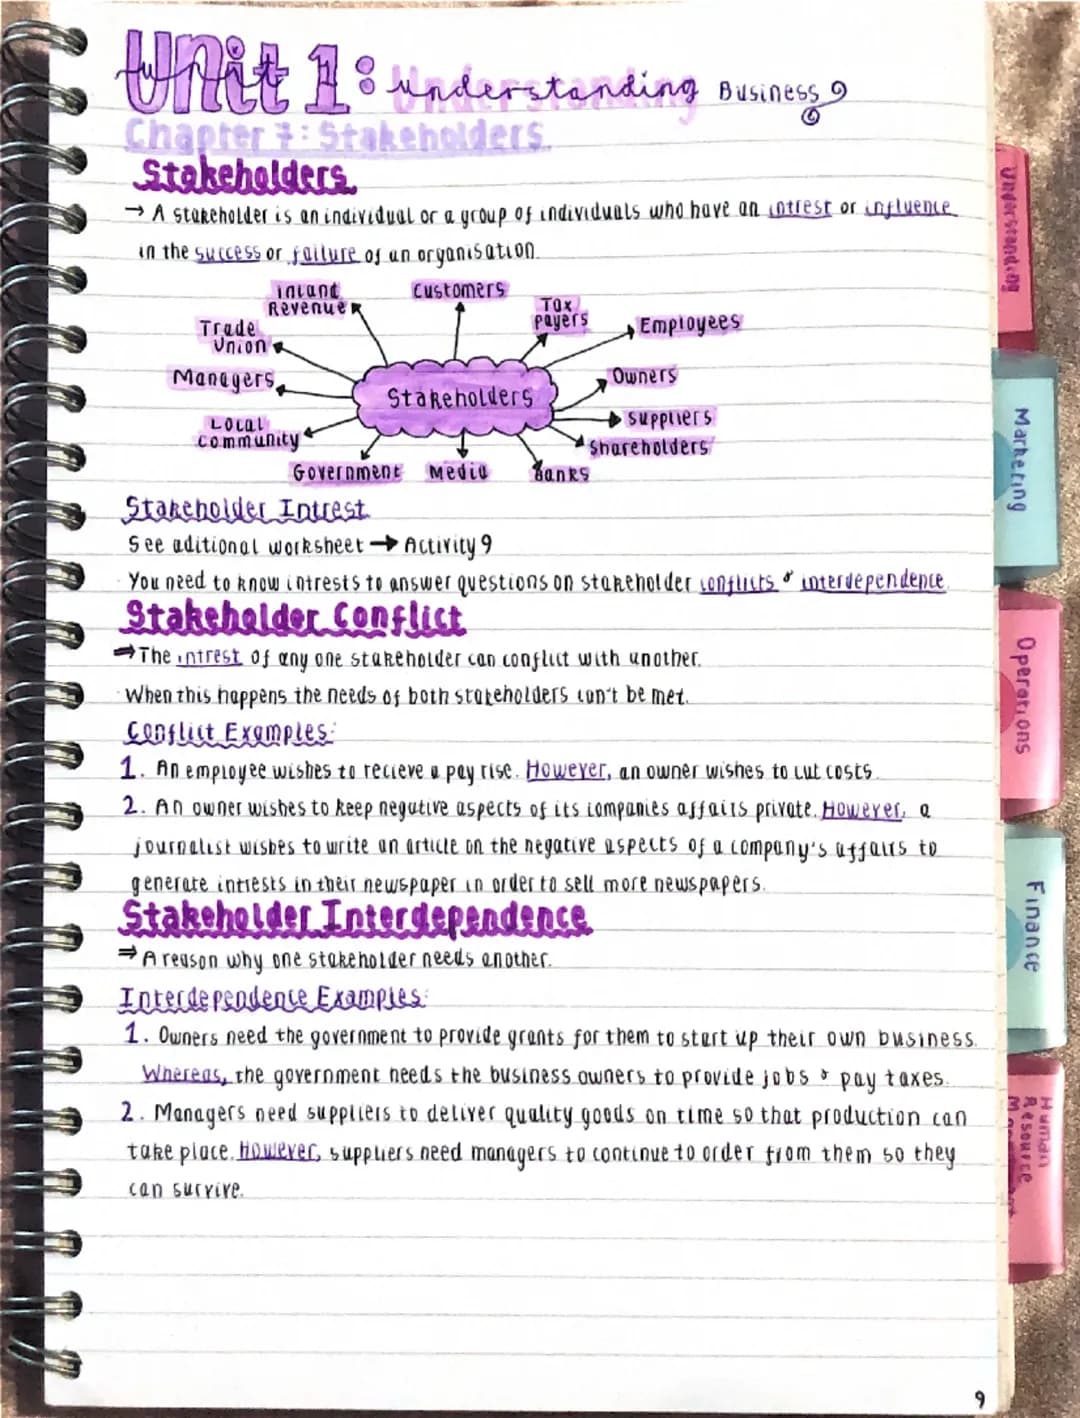 Unit 1: Understanding Business
Chapter 7: Stakeholders
Stakeholders
→ A stakeholder is an individual or a group of individuals who have an intrest or influence
in the success or failure of an organisation.
Inland
Revenue
Customers
Tax
Payers
Employees
Trade
Union
Managers
Stakeholders
Owners
Suppliers
Local
Community
Shareholders
Government
Media
Banks
Stakeholder Intrest
See aditional worksheet → Activity 9
You need to know intrests to answer questions on stakeholder conflicts & interdependence
Stakeholder Conflict
⇒ The intrest of any one stakeholder can conflict with another.
When this happens the needs of both stakeholders can't be met.
Conflict Examples:
1. An employee wishes to recieve a pay rise. However, an owner wishes to cut costs.
2. An owner wishes to keep negative aspects of its companies affairs private. However, a
journalist wishes to write an article on the negative aspects of a company's affairs to
generate intrests in their newspaper in order to sell more newspapers.
Stakeholder Interdependence
⇒ A reason why one stakeholder needs another.
Interdependence Examples:
1. Owners need the government to provide grants for them to start up their own business.
Whereas, the government needs the business owners to provide jobs & pay taxes.
2. Managers need suppliers to deliver quality goods on time so that production can
take place. However, suppliers need managers to continue to order from them so they
can survive.
9
Understanding
Marketing
Operations
Finance
Human
Resource